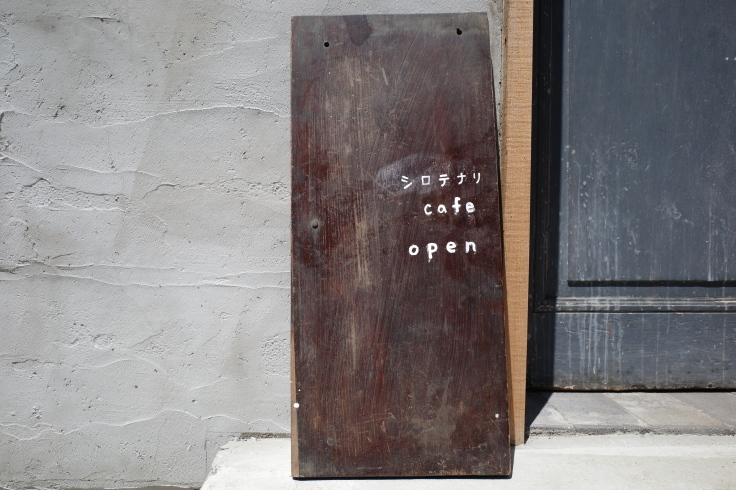 シロテナリ
cafe
open